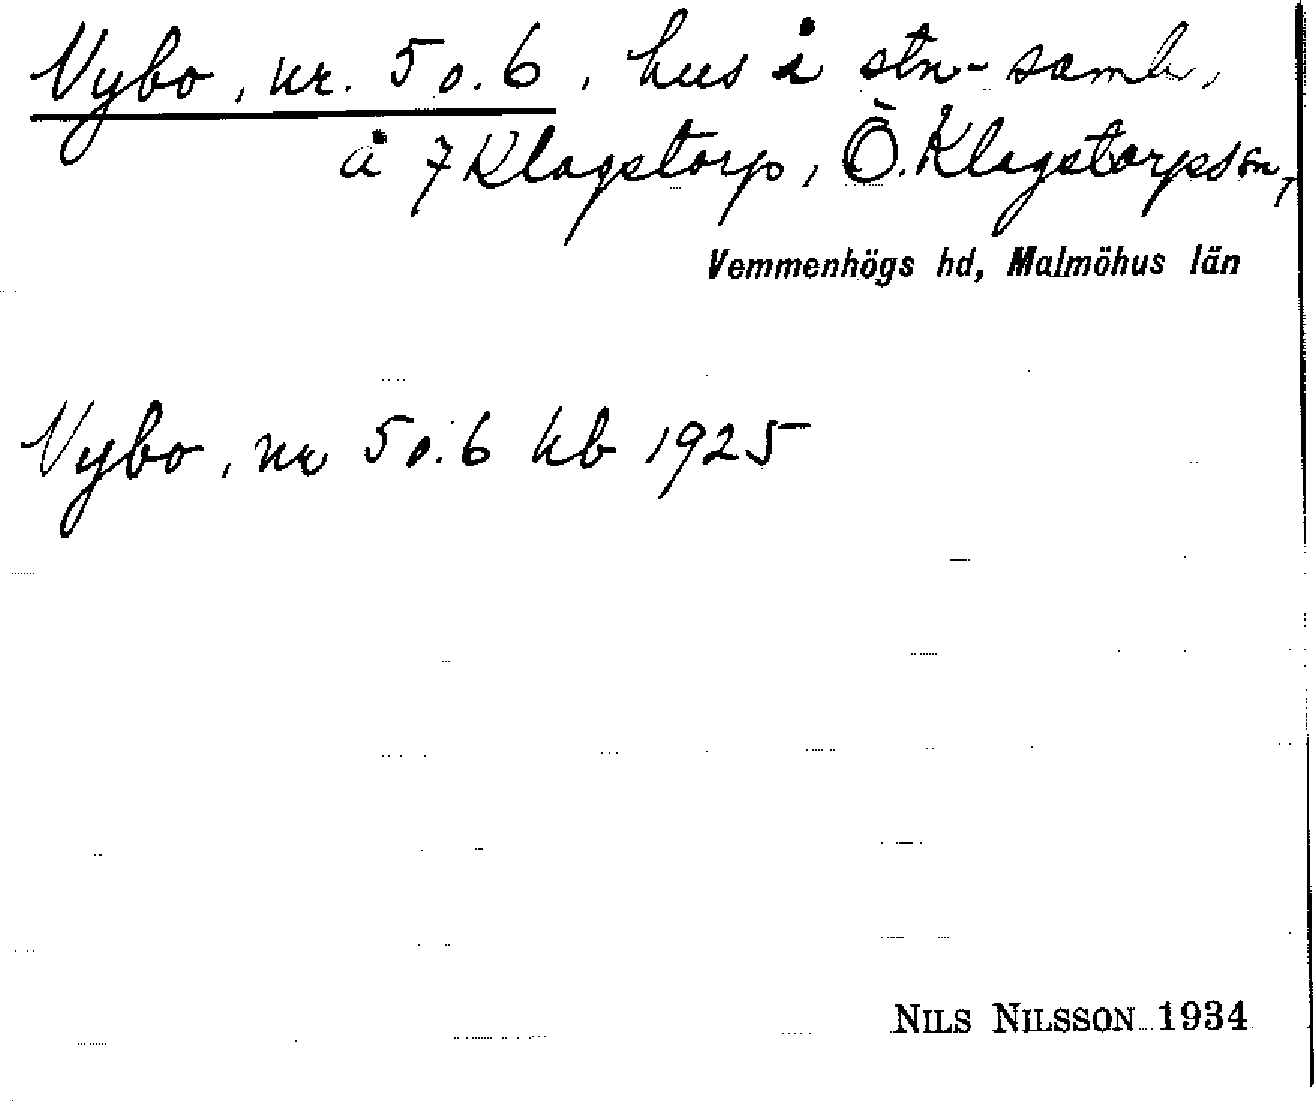 Nybo, nr. 5 o. 6, hus i stn-samh,
å 7 Klagstorp, Ö. Klagstorps sn,
Vemmenhögs hd, Malmöhus län
Nybo, nr 5 o. 6 kb 1925
NILS NILSSON 1934